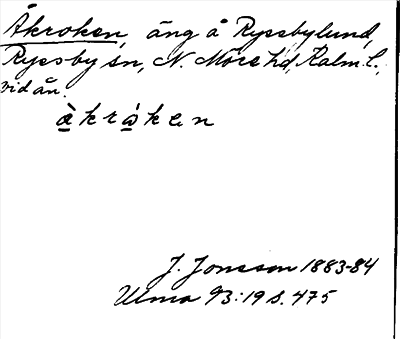 Åkroken, äng å Ryssbylund,
Ryssby sn, N. Möre hd, Kalm. l.,
vid ån.
åkråken
J. Jonsson 1883-84
Ulma 93:19 s. 475